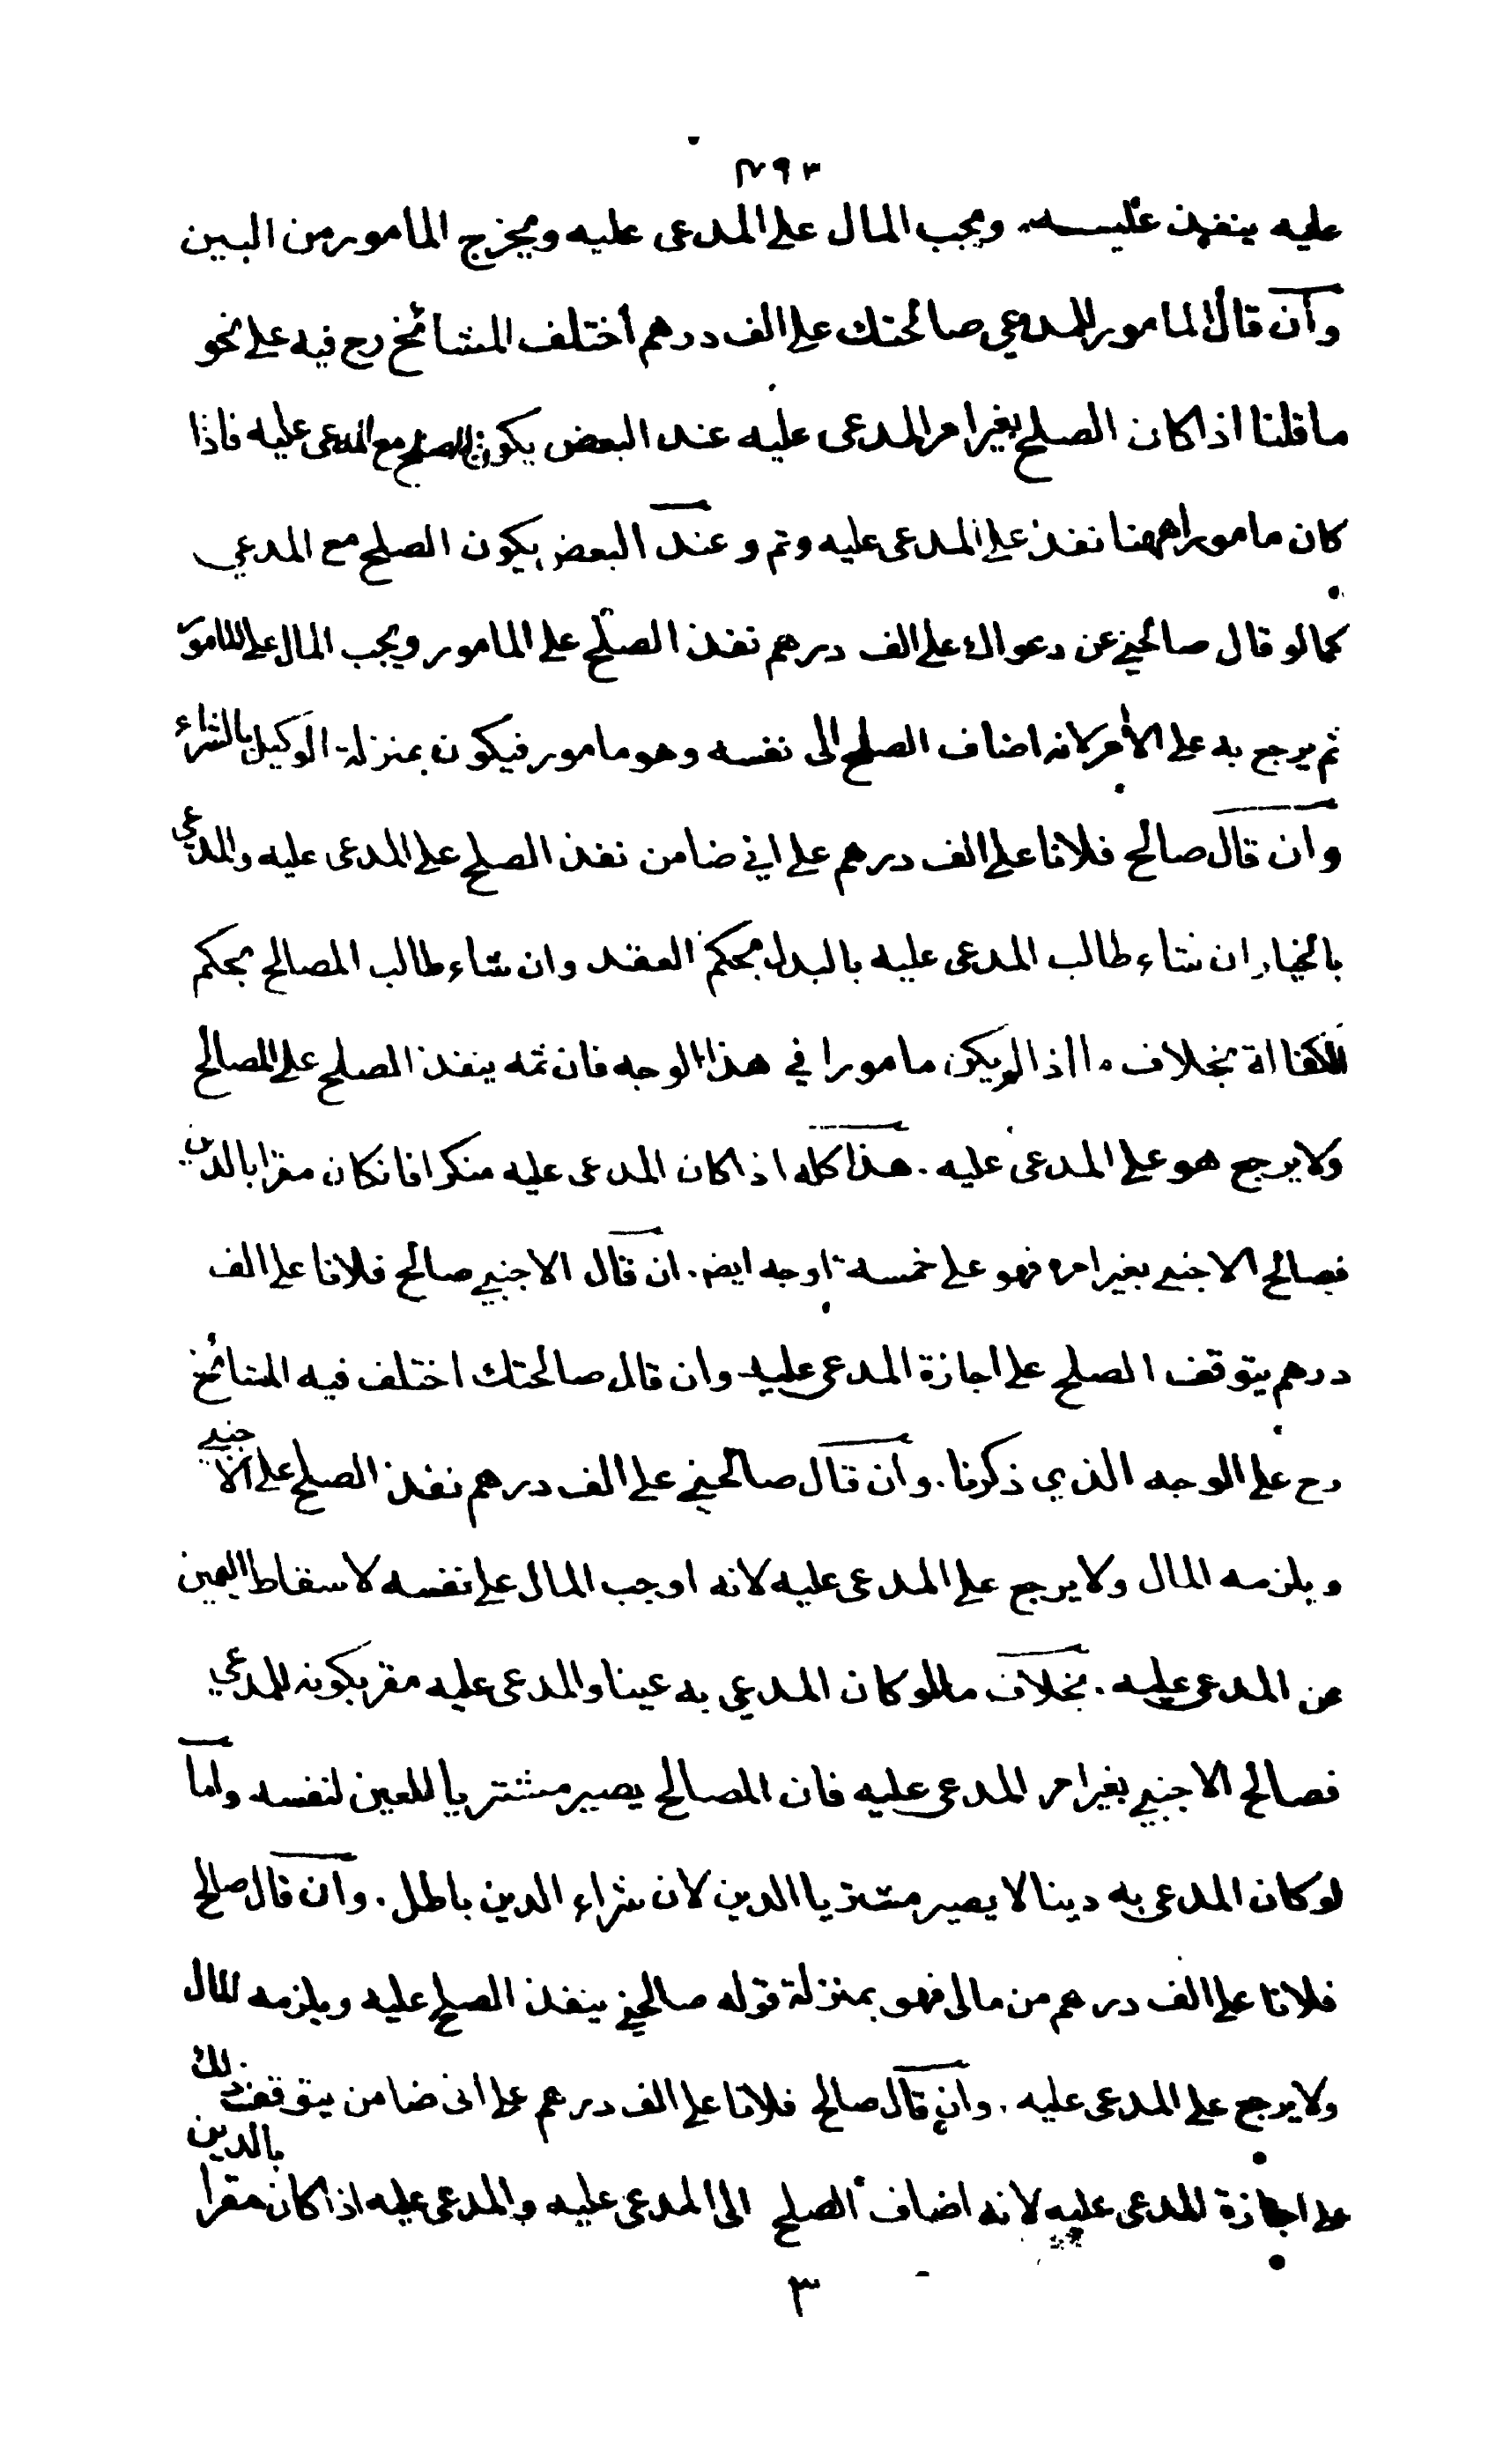 ٣٩٣
عليه ينفذ عليه ويجب المال على المدعى عليه ويخرج المامور من البين
وان قال المامور للمدعي صالحتك على الف درهم اختلف المشائخ رح فيه على نحو
ما قلنا اذا كان الصلح بغير امر المدعى عليه عند البعض يكون الصلح مع المدعى عليه فاذا
كان مامورا ههنا نفذ على المدعى عليه وتم وعند البعض يكون الصلح مع المدعي
كما لو قال صالحني عن دعواك على الف درهم نفذ الصلح على المامور ويجب المال على المامور
ثم يرجع به على الأمر لانه اضاف الصلح الى نفسه وهو مامور فيكون بمنزلة الوكيل بالشراء
وان قال صالح فلانا على الف درهم على اني ضامن نفذ الصلح على المدعى عليه والمدعي
بالخيار ان شاء طالب المدعى عليه بالبدل بحكم العقد وان شاء طالب المصالح بحكم
الكفالة بخلاف ما اذا لم يكن مامورا في هذا الوجه فان ثمه ينفذ الصلح على المصالح
ولا يرجع هو على المدعى عليه . هذا كله اذا كان المدعى عليه منكرا فانكان مقرا بالدين
فصالح الاجنبي بغير امره فهو على خمسة اوجه ايضا . ان قال الاجنبي صالح فلانا على الف
درهم يتوقف الصلح على اجازة المدعى عليه وان قال صالحتك اختلف فيه المشائخ
رح على الوجه الذي ذكرنا . وان قال صالحني على الف درهم نفذ الصلح على الاجنبي
ويلزمه المال ولا يرجع على المدعى عليه لانه اوجب المال على نفسه لاسقاط اليمين
عن المدعى عليه . بخلاف مالو كان المدعي به عينا والمدعى عليه مقر بكونه للمدعي
فصالح الاجنبي بغير امر المدعى عليه فان المصالح يصير مشتريا للعين لنفسه واما
لو كان المدعى به دينا لا يصير مشتريا الدين لان شراء الدين باطل . وان قال صالح
فلانا على الف درهم من مالى فهو بمنزلة قوله صالحني ينفذ الصلح عليه ويلزمه المال
ولا يرجع على المدعى عليه . وان قال صالح فلانا على الف درهم على انى ضامن يتوقف ذلك
على اجازة المدعى عليه لانه اضاف الصلح الى المدعى عليه والمدعى عليه اذا كان مقرا بالدين
٣